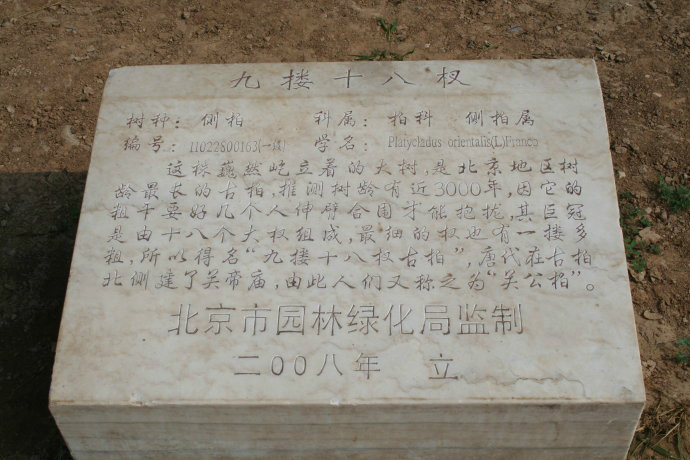 九搂十八杈
树种：侧柏 科属：柏科 侧柏属
编号：11022800163(一级) 学名：Platycladus orientalis(L)Franco
这株巍然屹立着的大树，是北京地区树
龄最长的古柏，推测树龄有近3000年，因它的
粗干要好几个人伸臂合围才能抱拢，其巨冠
是由十八个大杈组成，最细的杈也有一搂多
粗，所以得名“九搂十八杈古柏”，唐代在古柏
北侧建了关帝庙，由此人们又称之为“关公柏”。
北京市园林绿化局监制
二00八年 立